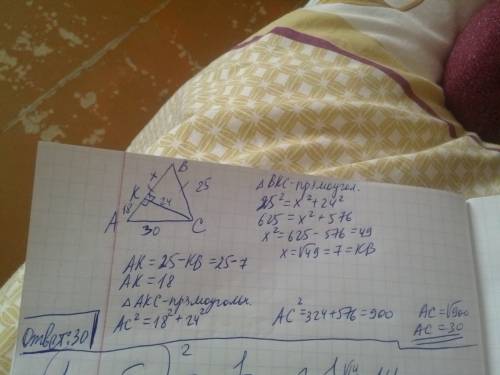 B
x
25
K
24
18
A
C
30
△BKC-прямоугол.
25²=x²+24²
625=x²+576
x²=625-576=49
x=√49=7=KB
AK=25-KB=25-7
AK=18
△AKC-прямоугольн.
AC²=18²+24²
AC²=324+576=900
AC=√900
AC=30
Ответ:30
2